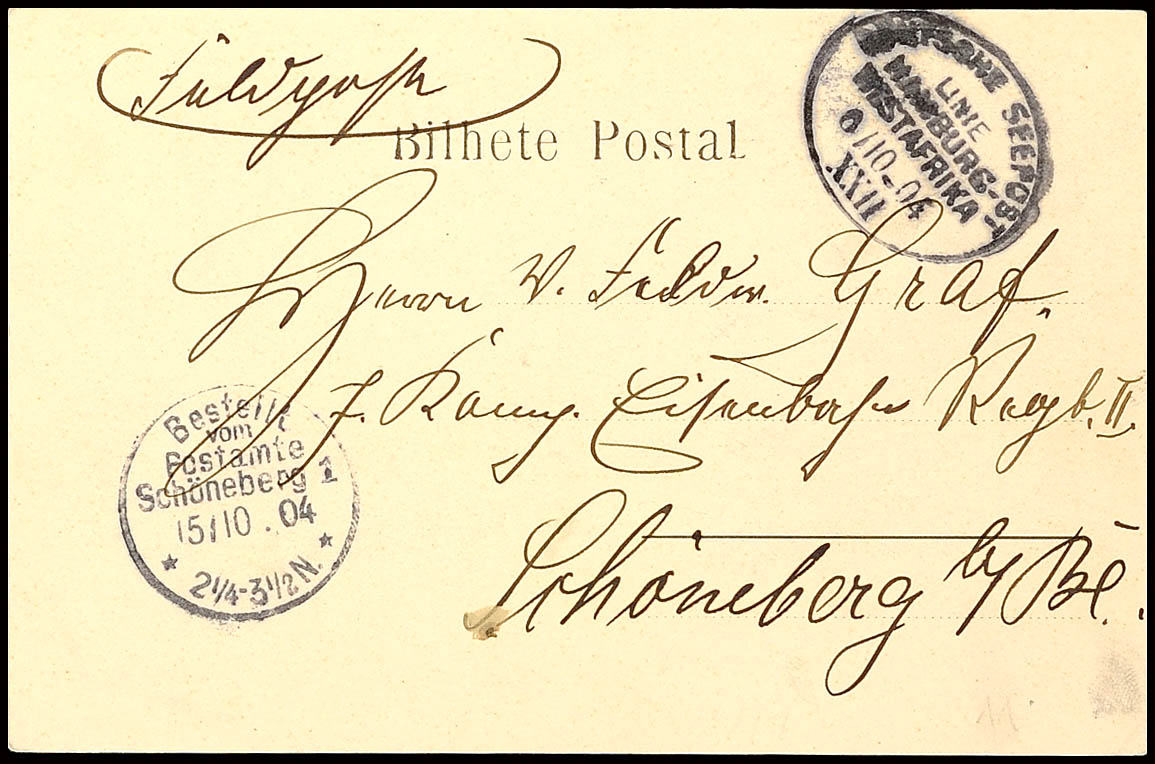 Feldpost
Bilhete Postal
DEUTSCHE SEEPOST
LINIE
HAMBURG-
WESTAFRIKA
/10-04
XXII
Herrn V. Feldw. Graf.
Eisenbahn Regt. II.
Schöneberg b/ Bl.
Bestellt
vom
Postamte
Schöneberg 1
15/10.04
* 2¼-3½N. *